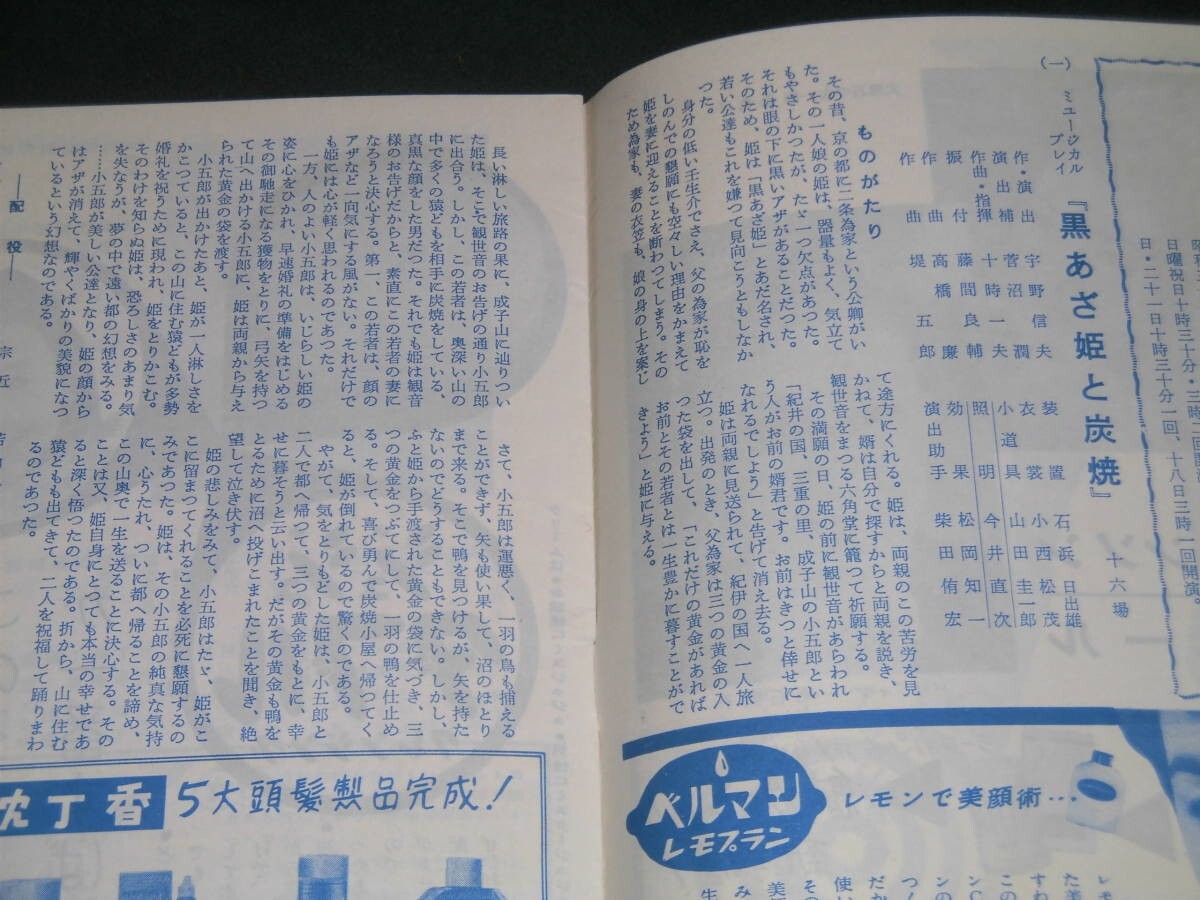 日曜祝日十時三十分・三時二
日・二十一日十時三十分一回、十八日三時一回開演。
(一)
ミュージカル
プレイ
『黒あざ姫と炭焼』
十六場
作・演出 宇野信夫
演出補 菅沼潤
作曲・指揮 十時一夫
振付 藤間良輔
作曲 高橋廉
作曲 堤五郎
装置 石浜日出雄
衣裳 小西松茂
小道具 山田圭一郎
照明 今井直次
効果 松岡知一
演出助手 柴田侑宏
ものがたり
その昔、京の都に二条為家という公卿がい
た。その一人娘の姫は、器量もよく、気立て
もやさしかつたが、たゞ一欠点があつた。
それは眼の下に黒いアザがあることだつた。
そのため、姫は「黒あざ姫」とあだ名され、
若い公達もこれを嫌つて見向こうともしなか
つた。
身分の低い壬生介でさえ、父の為家が恥を
しのんでの懇願にも空々しい理由をかまえて
姫を妻に迎えることを断わつてしまう。その
ため為家も、妻の衣笠も、娘の身の上を案じ
て途方にくれる。姫は、両親のこの苦労を見
かねて、婿は自分で探すからと両親を説き、
観世音をまつる六角堂に籠つて祈願する。
その満願の日、姫の前に観世音があらわれ
「紀井の国、三重の里、成子山の小五郎とい
う人がお前の婿君です。お前はきつと倖せに
なれるでしよう」と告げて消え去る。
姫は両親に見送られて、紀伊の国へ一人旅
立つ。出発のとき、父為家は三つの黄金の入
つた袋を出して、「これだけの黄金があれば
お前とその若者とは一生豊かに暮すことがで
きよう」と姫に与える。
長い淋しい旅路の果に、成子山に辿りつい
た姫は、そこで観世音のお告げの通り小五郎
に出合う。しかし、この若者は、奥深い山の
中で多くの猿どもを相手に炭焼をしている、
真黒な顔をした男だつた。それでも姫は観音
様のお告げだからと、素直にこの若者の妻に
なろうと決心する。第一、この若者は、顔の
アザなど一向気にする風がない。それだけで
も姫には心が軽く思われるのであつた。
一方、人のよい小五郎は、いじらしい姫の
姿に心をひかれ、早速婚礼の準備をはじめる
その御馳走になる獲物をとりに、弓矢を持つ
て山へ出かける小五郎に、姫は両親から与え
られた黄金の袋を渡す。
小五郎が出かけたあと、姫が一人淋しさを
かこつていると、この山に住む猿どもが多勢
婚礼を祝うために現われ、姫をとりかこむ。
そのわけを知らぬ姫は、恐ろしさのあまり気
を失なうが、夢の中で遠い都の幻想をみる。
……小五郎が美しい公達となり、姫の顔から
はアザが消えて、輝やくばかりの美貌になつ
ているという幻想なのである。
さて、小五郎は運悪く、一羽の鳥も捕える
ことができず、矢も使い果して、沼のほとり
まで来る。そこで鴨を見つけるが、矢を持た
ないのでどうすることもできない。しかし、
ふと姫から手渡された黄金の袋に気づき、三
つの黄金をつぶてにして、一羽の鴨を仕止め
る。そして、喜び勇んで炭焼小屋へ帰つてく
ると、姫が倒れているので驚くのである。
やがて、気をとりもどした姫は、小五郎と
二人で都へ帰つて、三つの黄金をもとに、幸
せに暮そうと云い出す。だがその黄金も鴨を
とるために沼へ投げこまれたことを聞き、絶
望して泣き伏す。
姫の悲しみをみて、小五郎はたゞ、姫がこ
こに留まつてくれることを必死に懇願するの
みであつた。姫は、その小五郎の純真な気持
に、心うたれ、ついに都へ帰ることを諦め、
この山奥で一生を送ることに決心する。その
ことは又、姫自身にとつても本当の幸せであ
ると深く悟つたのである。折から、山に住む
猿どもも出てきて、二人を祝福して踊りまわ
るのであつた。
――配役――
宗近
ベルマン
レモプラン
レモンで美顔術…
丁香
5大頭髪製品完成！